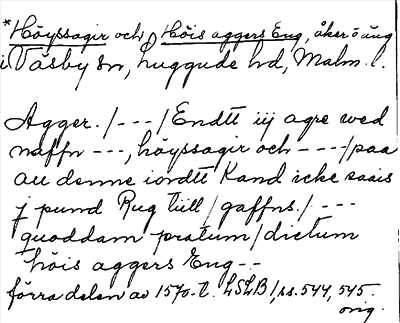 *Höyssagir och Höis aggers Eng, åker o äng
i Väsby sn, Luggude hd, Malm. l.
Agger./---/Endtt iij agre wed
naffn ---, höyssagir och ----/paa
all denne iordtt Kand icke saais
j pund Rug tiill/gaffns./---
quoddam pratum/dictum
höis aggers Eng--
förra delen av 1570-t. LSLB 1, ss. 544, 545.
orig.